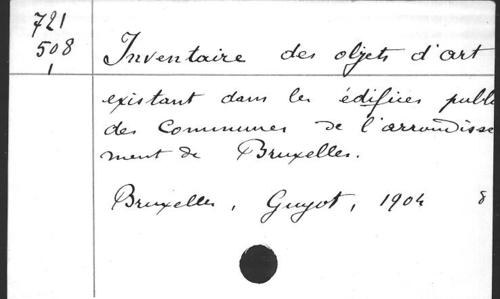 721
508
1
Inventaire des objets d'art
existant dans les édifices publ
des Communes de l'arrondisse
ment de Bruxelles.
Bruxelles, Guyot, 1904 8